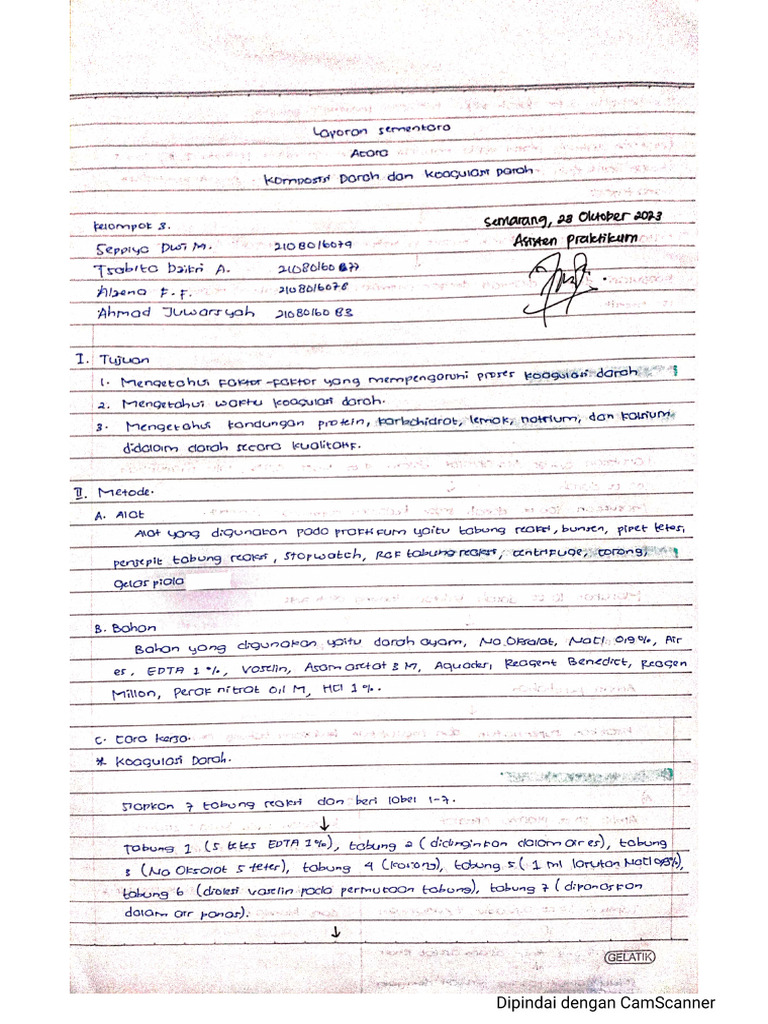 Laporan sementara
Acara
Komposisi Darah dan Koagulasi Darah
Kelompok 3.
Semarang, 28 Oktober 2023
Asisten Praktikum
Seppiyo Dwi M. 2108016079
Tsabita Dzikri A. 2108016077
Alzena F.F. 2108016078
Ahmad Juwarsyah 2108016083
I. Tujuan
1. Mengetahui faktor-faktor yang mempengaruhi proses koagulasi darah.
2. Mengetahui waktu koagulasi darah.
3. Mengetahui kandungan protein, karbohidrat, lemak, natrium, dan kalsium
didalam darah secara kualitatif.
II. Metode.
A. Alat
Alat yang digunakan pada praktikum yaitu tabung reaksi, bunsen, pipet tetes,
penjepit tabung reaksi, stopwatch, Rak tabung reaksi, centrifuge, corong,
gelas piala
B. Bahan
Bahan yang digunakan yaitu darah ayam, Na Oksalat, NaCl 0,9%, Air
es, EDTA 1%, Vaselin, Asam asetat 3 M, Aquades, Reagent Benedict, Reagen
Millon, Perak nitrat 0,1 M, HCl 1%.
C. Cara Kerja.
* Koagulasi Darah.
Siapkan 7 tabung reaksi dan beri label 1-7.
↓
Tabung 1 (5 tetes EDTA 1%), tabung 2 (didinginkan dalam air es), tabung
3 (Na Oksalat 5 tetes), tabung 4 (kosong), tabung 5 (1 ml larutan NaCl 0,9%),
tabung 6 (diolesi vaselin pada permukaan tabung), tabung 7 (dipanaskan
dalam air panas).
↓
GELATIK
Dipindai dengan CamScanner